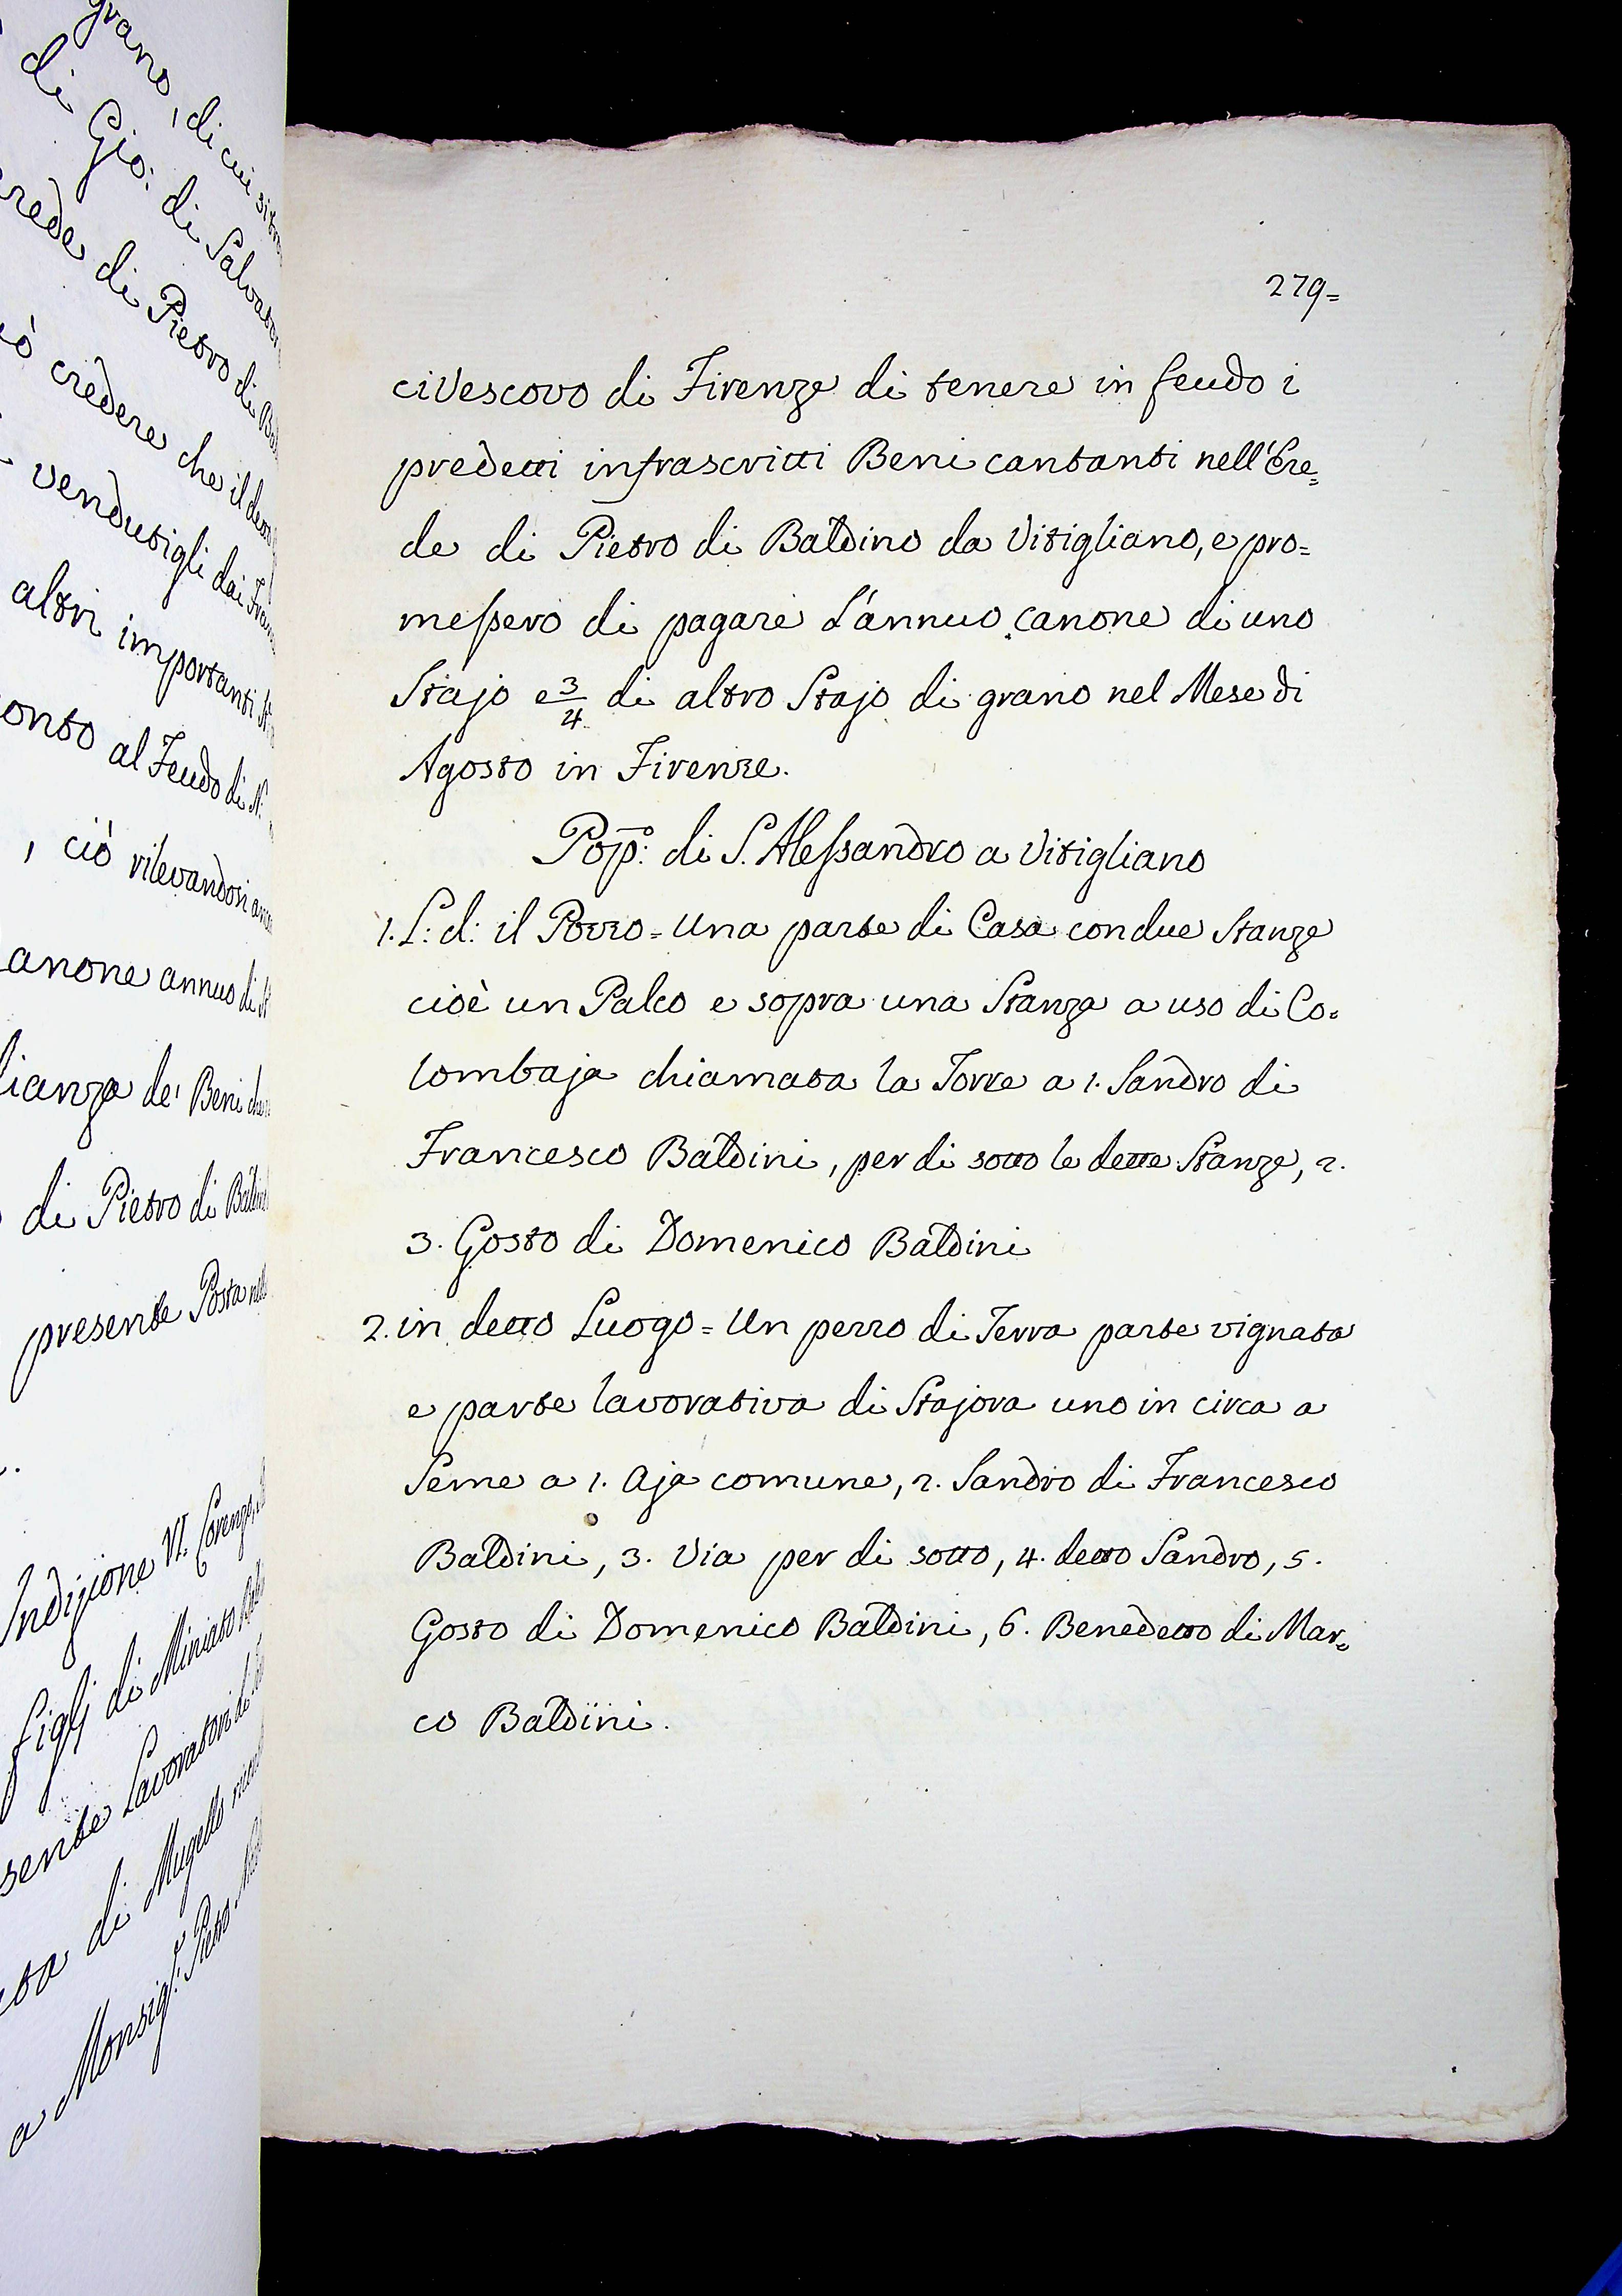 grano, di cui si
di Gio: di Salvador
rede di Pietro di
iò credere che il
vendutigli dai
altri importanti
onto al Feudo di N.
, ciò rilevandosi
anone annuo di
lianza de' Beni che
di Pietro di
presente Posta
Indizione VI. Lorenzo,
figlj di Miniato
sente Lavoratori di
di Mugello
a Monsig.: Pietro
279=
civescovo di Firenze di tenere in feudo i
predetti infrascritti Beni cantanti nell'Ere=
de di Pietro di Baldino da Vitigliano, e pro=
messero di pagare L'annuo canone di uno
Stajo e 3/4 di altro Stajo di grano nel Mese di
Agosto in Firenze.
Pop: di S. Alessandro a Vitigliano
1. L: d: il Pozzo = Una parte di Casa con due Stanze
cioè un Palco e sopra una Stanza a uso di Co=
lombaja chiamata la Torre a 1. Sandro di
Francesco Baldini, per di sotto le dette Stanze, 2.
3. Gosto di Domenico Baldini
2. in detto Luogo = Un pezzo di Terra parte vignata
e parte lavorativa di Stajora uno in circa a
Seme a 1. Aja comune, 2. Sandro di Francesco
Baldini, 3. Via per di sotto, 4. detto Sandro, 5.
Gosto di Domenico Baldini, 6. Benedetto di Mar=
co Baldini.